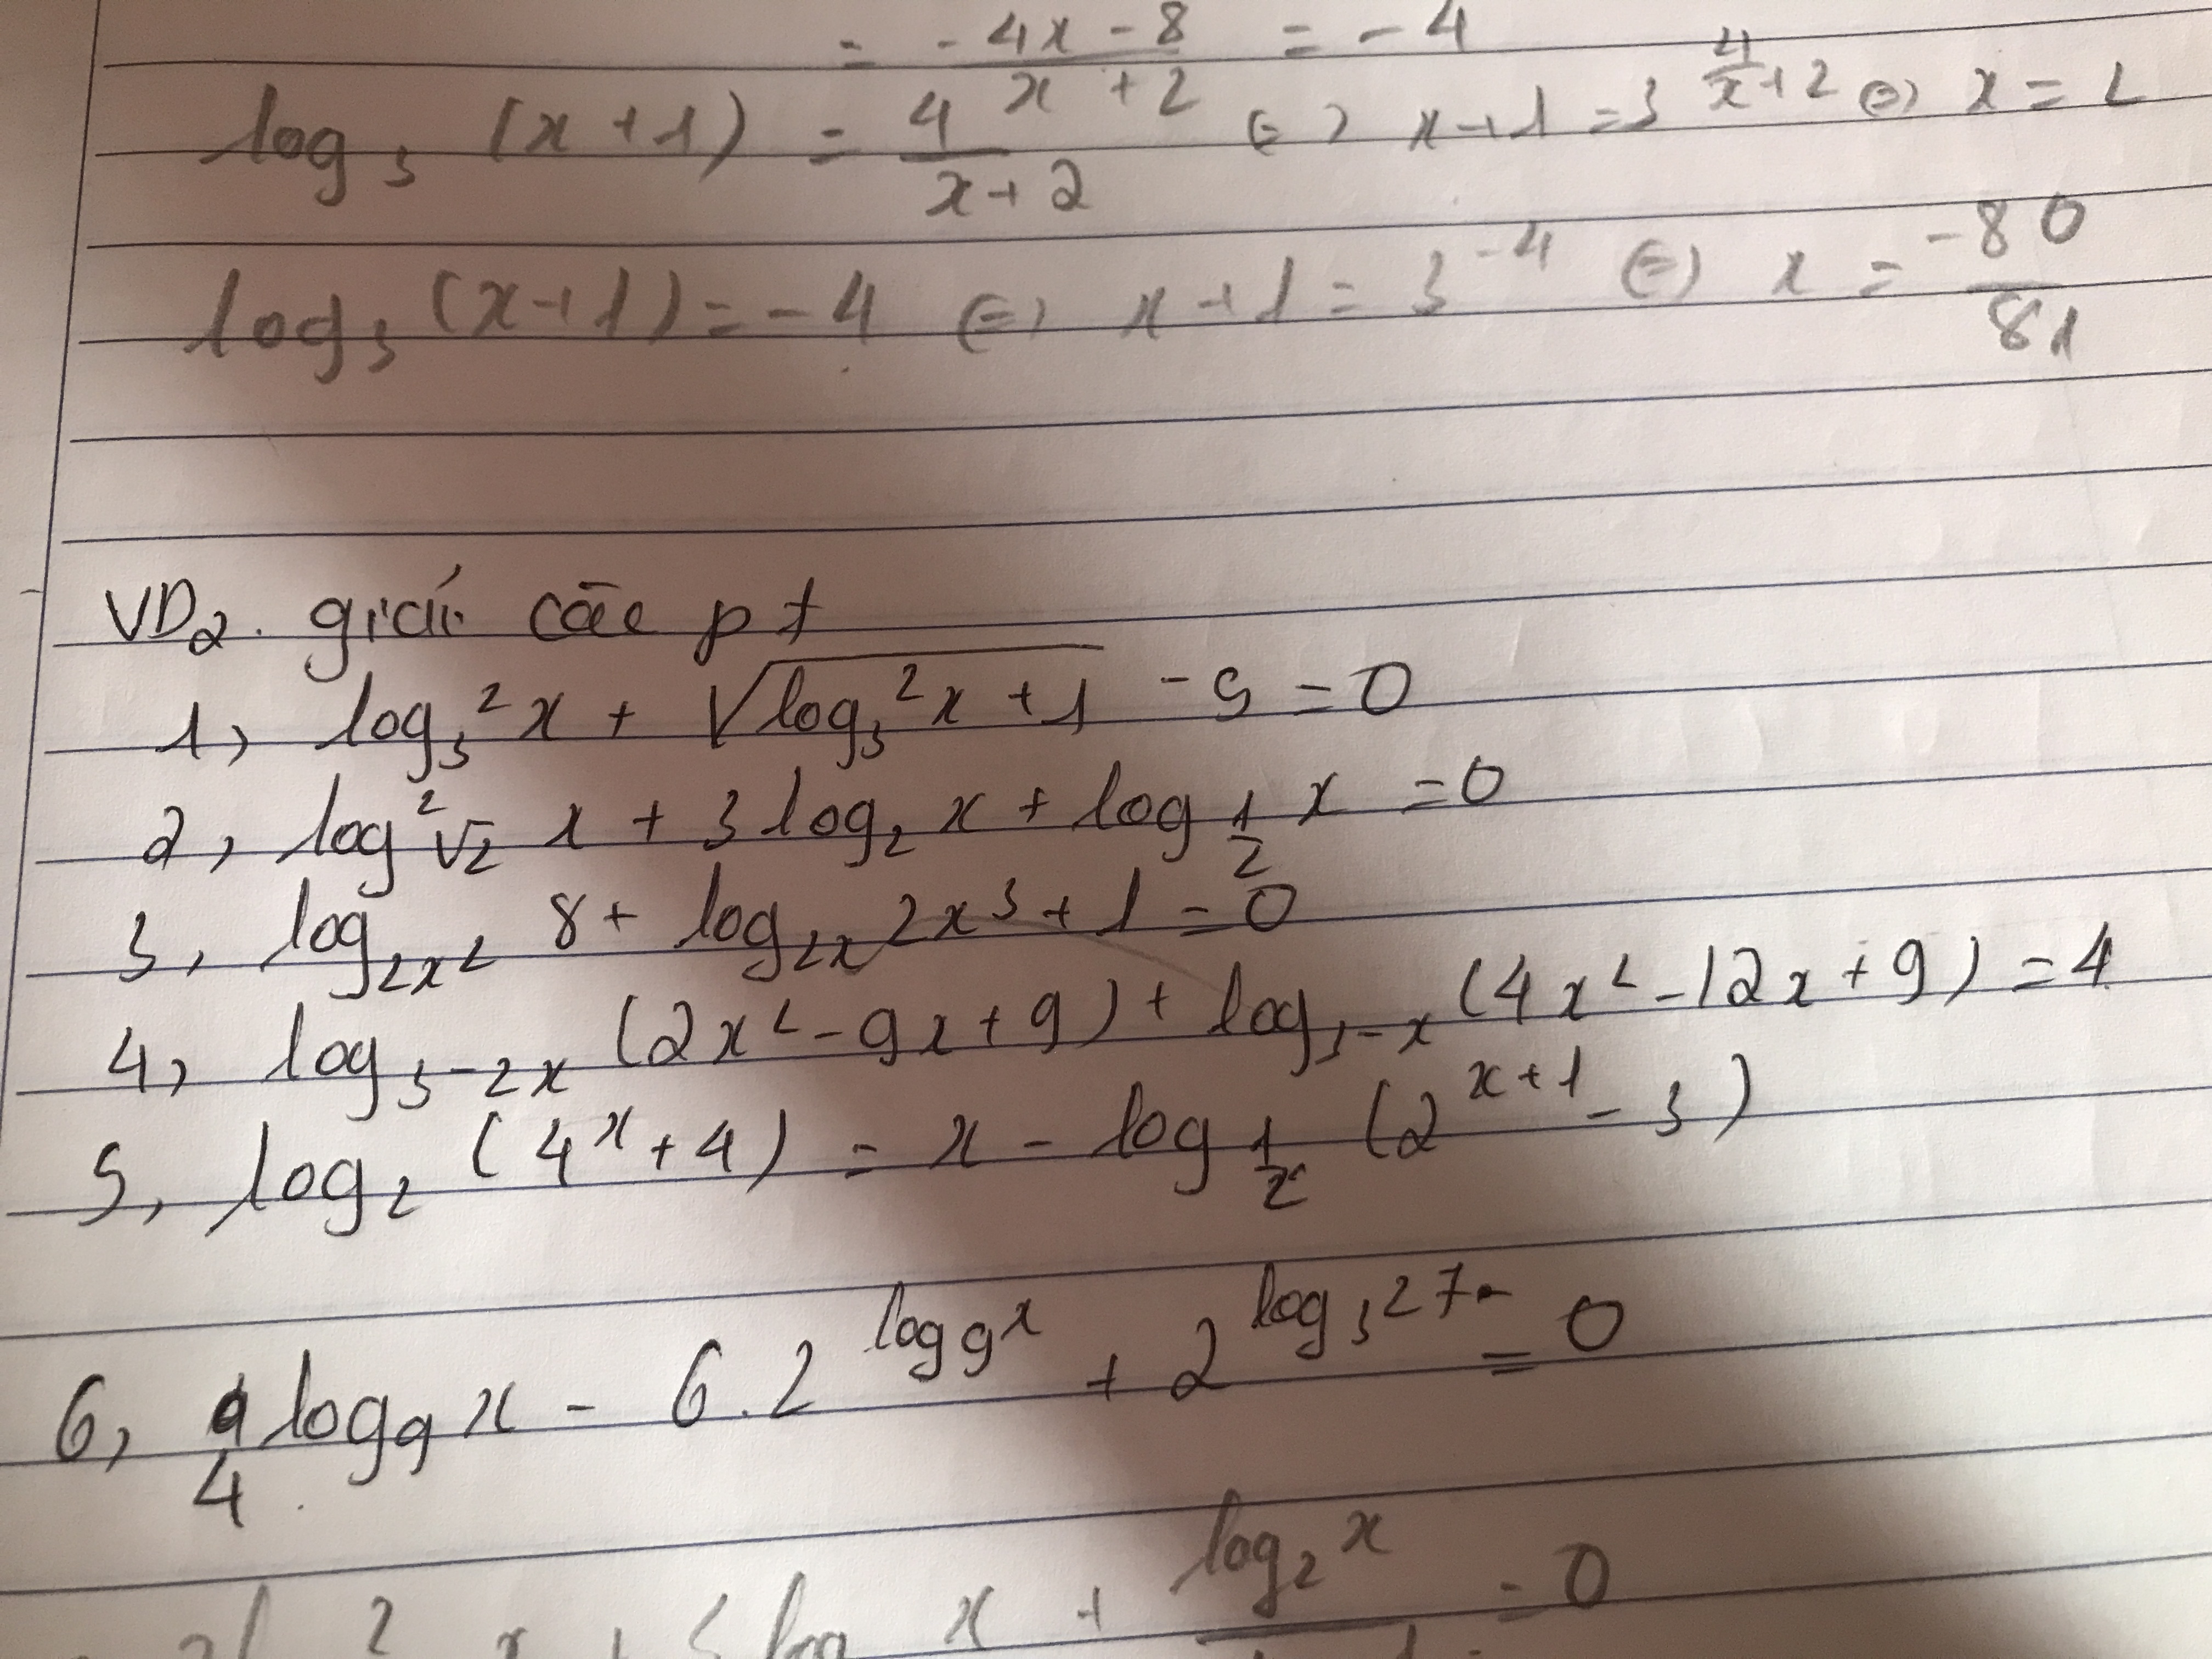 = (-4x - 8)/(x + 2) = -4
log₃ (x+1) = 4/(x+2) ⇔ x+1 = 3^(4/x+2) ⇔ x = 2
log₃ (x+1) = -4 ⇔ x+1 = 3⁻⁴ ⇔ x = -80/81
VD2. giải các pt
1, log₃²x + √(log₃²x + 1) - 5 = 0
2, log²_√2 x + 3log₂x + log_1/2 x = 0
3, log_2x² 8 + log_2x 2x³ + 1 = 0
4, log_3-2x (2x² - 9x + 9) + log_3-x (4x² - 12x + 9) = 4
5, log₂ (4^x + 4) = x - log_1/2 (2^(x+1) - 3)
6, 4 log₉x - 6.2^(log₉x) + 2^(log₃27) = 0
log₂x = 0